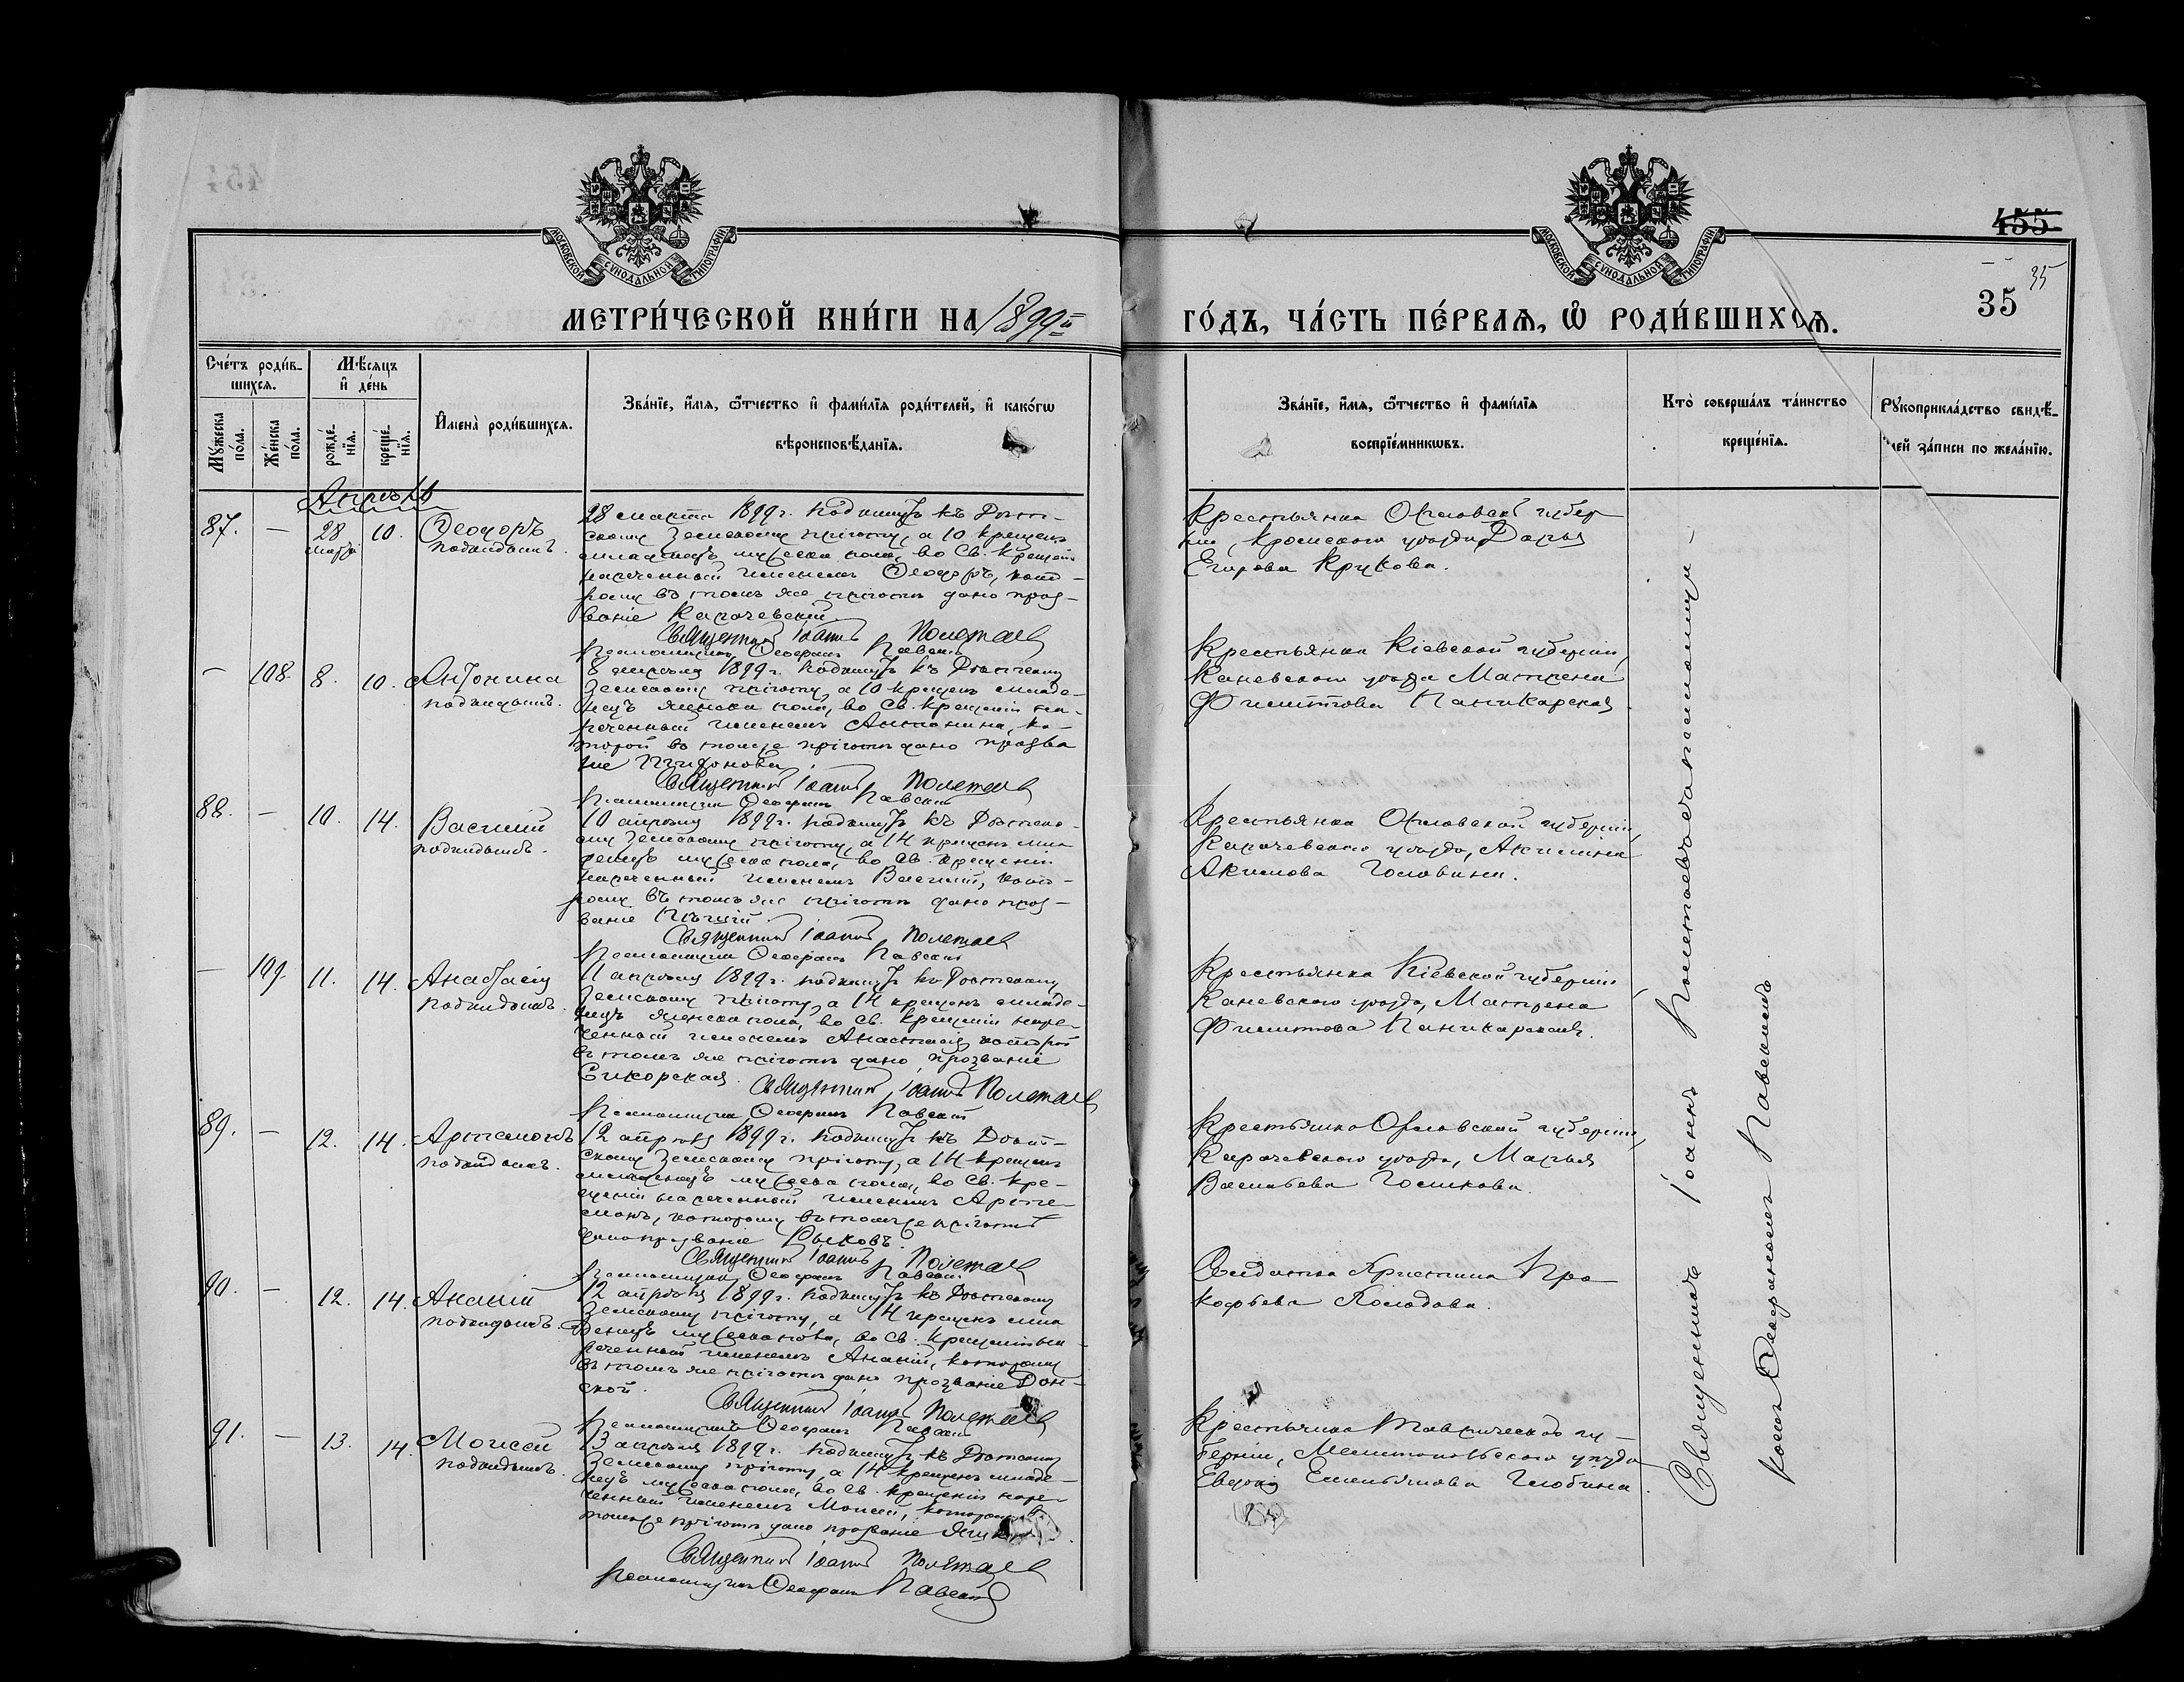 МОСКОВСКОЙ СѴНОДАЛЬНОЙ ТИПОГРАФІИ
МОСКОВСКОЙ СѴНОДАЛЬНОЙ ТИПОГРАФІИ
455
35
35
МЕТРИ́ЧЕСКОЙ КНИ́ГИ НА 1899й
ГО́ДЪ, ЧА́СТЬ ПЕ́РВАѦ, Ѿ РОДИ́ВШИХСѦ.
Сче́тъ роди́в-
шихсѧ.
Мꙋ́жеска
по́ла.
Же́нска
по́ла.
Мѣ́сѧцъ
и҆ де́нь
рожде́-
нїѧ.
креще́-
нїѧ.
И҆мена̀ роди́вшихсѧ.
Зва́нїе, и҆́мѧ, ѻ҆́тчество и҆ фами́лїѧ роди́телей, и҆ како́гѡ
вѣроисповѣ́данїѧ.
Зва́нїе, и҆́мѧ, ѻ҆́тчество и҆ фами́лїѧ
воспрїе́мникѡвъ.
Кто̀ соверша́лъ та́инство
креще́нїѧ.
Рꙋкоприкла́дство свидѣ́-
лей за́писи по жела́нїю.
Апрѣль
87. — 28 марта 10. Ѳеодоръ
подкидышъ.
28 марта 1899 г. подкинутъ къ Ростов-
скому Земскому пріюту, а 10 крещенъ
младенецъ мужеска пола, во Св. Крещеніи
нареченный именемъ Ѳеодоръ, кото-
рому въ томъ же пріютѣ дано проз-
ваніе Карачевскій
Священникъ Іоаннъ Полетаев
Псаломщикъ Ѳеофанъ Павскій
Крестьянка Орловской губер
ніи, Кромскаго уѣзда Дарья
Егорова Крукова.
— 108. 8. 10. Антонина
подкидышъ.
8 апрѣля 1899 г. подкинутъ къ Ростовскому
Земскому пріюту, а 10 крещенъ младе-
нецъ женска пола, во Св. Крещеніи на-
реченный именемъ Антонина, ко-
торой въ томъ же пріютѣ дано прозва
ніе
Священникъ Іоаннъ Полетаев
Псаломщикъ Ѳеофанъ Павскій
Крестьянка Кіевской губерніи,
Каневского уѣзда Матрена
Филиппова Паникарская
88. — 10. 14. Василій
подкидышъ.
10 апрѣля 1899 г. подкинутъ къ Ростовско-
му Земскому пріюту, а 14 крещенъ мла
денецъ мужеска пола, во Св. Крещеніи
нареченный именемъ Василій, кото-
рому въ томъ же пріютѣ дано проз-
ваніе
Священникъ Іоаннъ Полетаев
Псаломщикъ Ѳеофанъ Павскій
Крестьянка Орловской губерніи,
Карачевскаго уѣзда, Акилина
Акимова Головина.
— 109. 11. 14. Анастасія
подкидышъ.
11 апрѣля 1899 г. подкинутъ къ Ростовскому
Земскому пріюту, а 14 крещенъ младе-
нецъ женска пола, во Св. Крещеніи наре-
ченный именемъ Анастасія, которой
въ томъ же пріютѣ дано прозваніе
Сикорская.
Священникъ Іоаннъ Полетаев
Псаломщикъ Ѳеофанъ Павскій
Крестьянка Кіевской губерніи,
Каневскаго уѣзда, Матрена
Филиппова Паникарская.
89. — 12. 14. Артемонъ
подкидышъ.
12 апрѣля 1899 г. подкинутъ къ Ростов-
скому Земскому пріюту, а 14 крещенъ
младенецъ мужеска пола, во Св. Кре-
щеніи нареченный именемъ Арте-
монъ, которому въ томъ же пріютѣ
дано прозваніе Рыковъ.
Священникъ Іоаннъ Полетаев
Псаломщикъ Ѳеофанъ Павскій
Крестьянка Орловской губерніи,
Карачевскаго уѣзда, Марья
Васильева Голикова.
90. — 12. 14. Ананій
подкидышъ.
12 апрѣля 1899 г. подкинутъ къ Ростовскому
Земскому пріюту, а 14 крещенъ мла
денецъ мужеска пола, во Св. Крещеніи на-
реченный именемъ Ананій, которому
въ томъ же пріютѣ дано прозваніе Дон-
ской.
Священникъ Іоаннъ Полетаев
Псаломщикъ Ѳеофанъ Павскій
Солдатка Христина Про-
кофьева Колодова.
91. — 13. 14. Моисей
подкидышъ.
13 апрѣля 1899 г. подкинутъ къ Ростовскому
Земскому пріюту, а 14 крещенъ младе-
нецъ мужеска пола, во Св. Крещеніи наре-
ченный именемъ Моисей, которому въ
томъ же пріютѣ дано прозваніе
Священникъ Іоаннъ Полетаев
Псаломщикъ Ѳеофанъ Павскій
Крестьянка Таврической гу-
берніи, Мелитопольскаго уѣзда
Евдокія Емельянова Глобина.
Священникъ Іоаннъ Полетаевъ съ псаломщи-
комъ Ѳеофаномъ Павскимъ